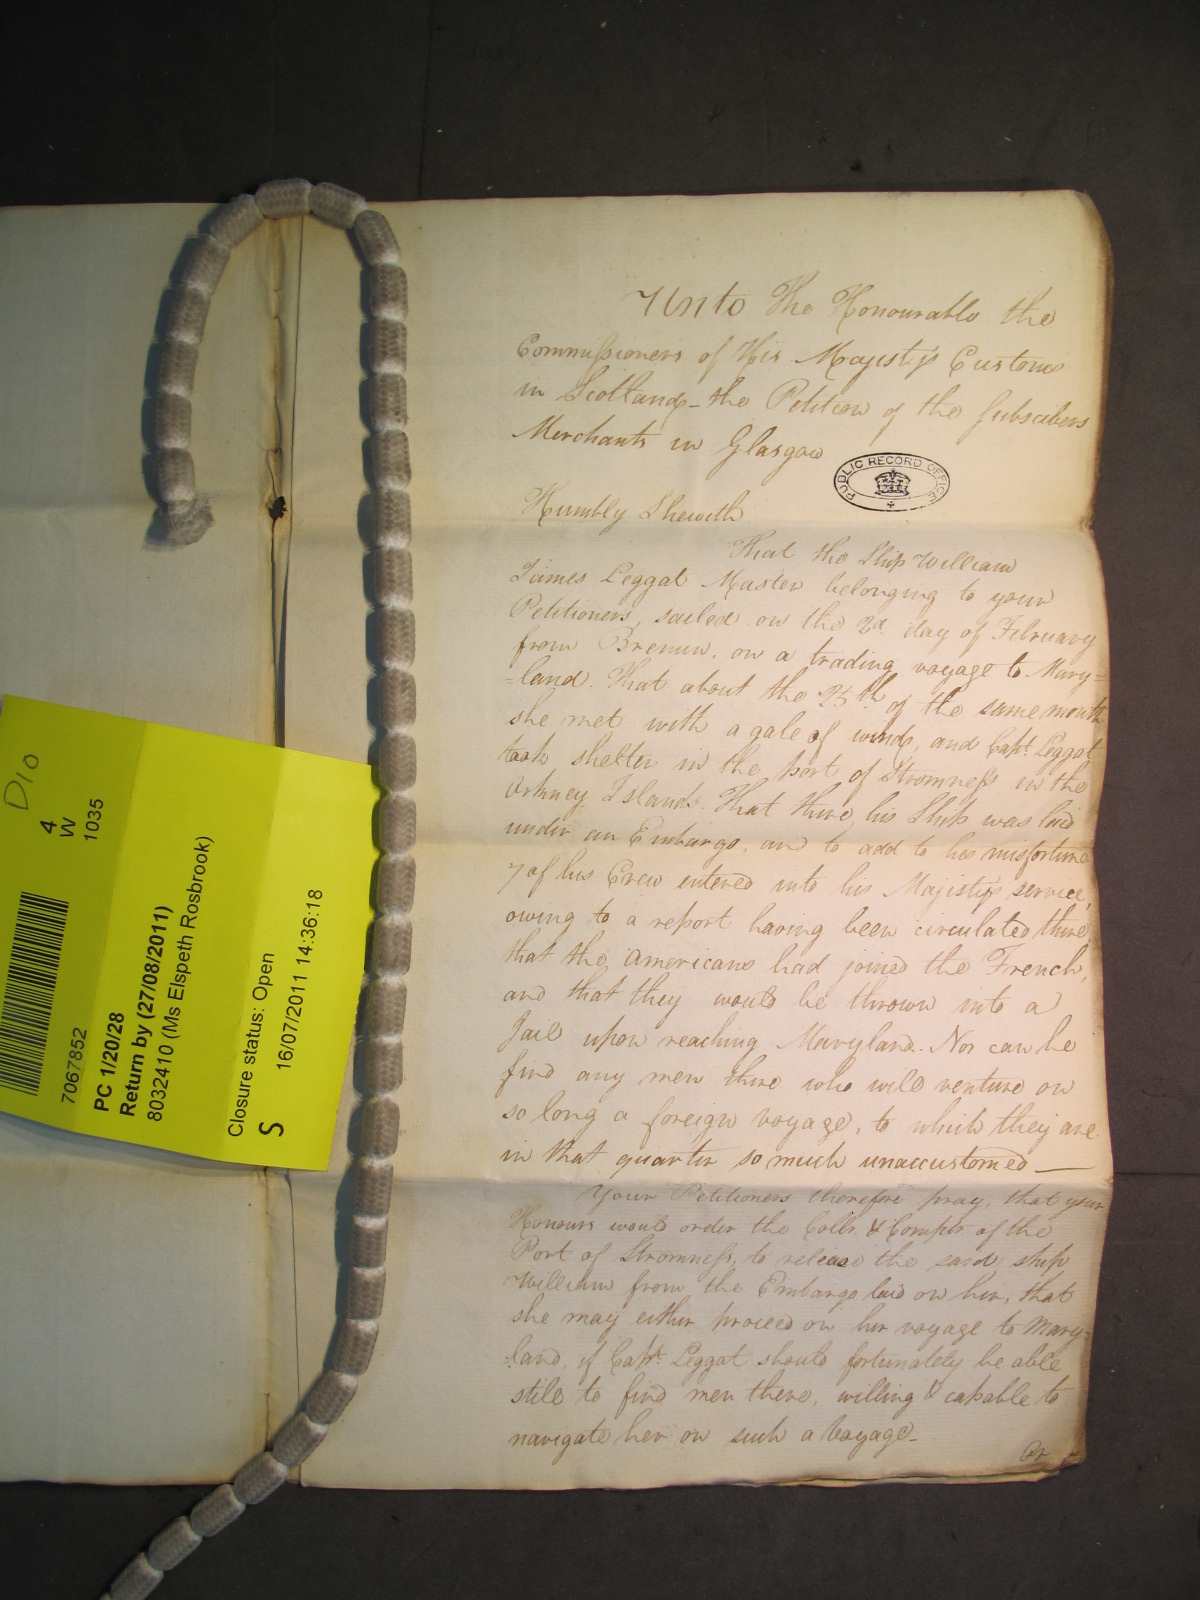 Unto The Honourable the
Commissioners of His Majesty's Customs
in Scotland - the Petition of the Subscribers
Merchants in Glasgow
PUBLIC RECORD OFFICE
Humbly Sheweth
That the Ship William
James Leggat Master belonging to your
Petitioners, sailed on the 2d day of February
from Bremen, on a trading voyage to Mary=
=land. That about the 25th of the same month
she met with a gale of wind, and Capt. Leggat
took shelter in the port of Stromness in the
Orkney Islands. That there, his Ship was laid
under an Embargo, and to add to his misfortune
7 of his Crew entered into his Majesty's service,
owing to a report having been circulated there
that the Americans had joined the French,
and that they would be thrown into a
Jail upon reaching Maryland. Nor can he
find any men there who will venture on
so long a foreign voyage, to which they are
in that quarter so much unaccustomed —
Your Petitioners therefore pray, that your
Honours would order the Collr. & Compr. of the
Port of Stromness, to release the said ship
William from the Embargo laid on her, that
she may either proceed on her voyage to Mary=
land, if Capt. Leggat should fortunately be able
still to find men there, willing & capable to
navigate her on such a Voyage -
Or
D10
4
W
1035
7067852
PC 1/20/28
Return by (27/08/2011)
8032410 (Ms Elspeth Rosbrook)
Closure status: Open
S
16/07/2011 14:36:18